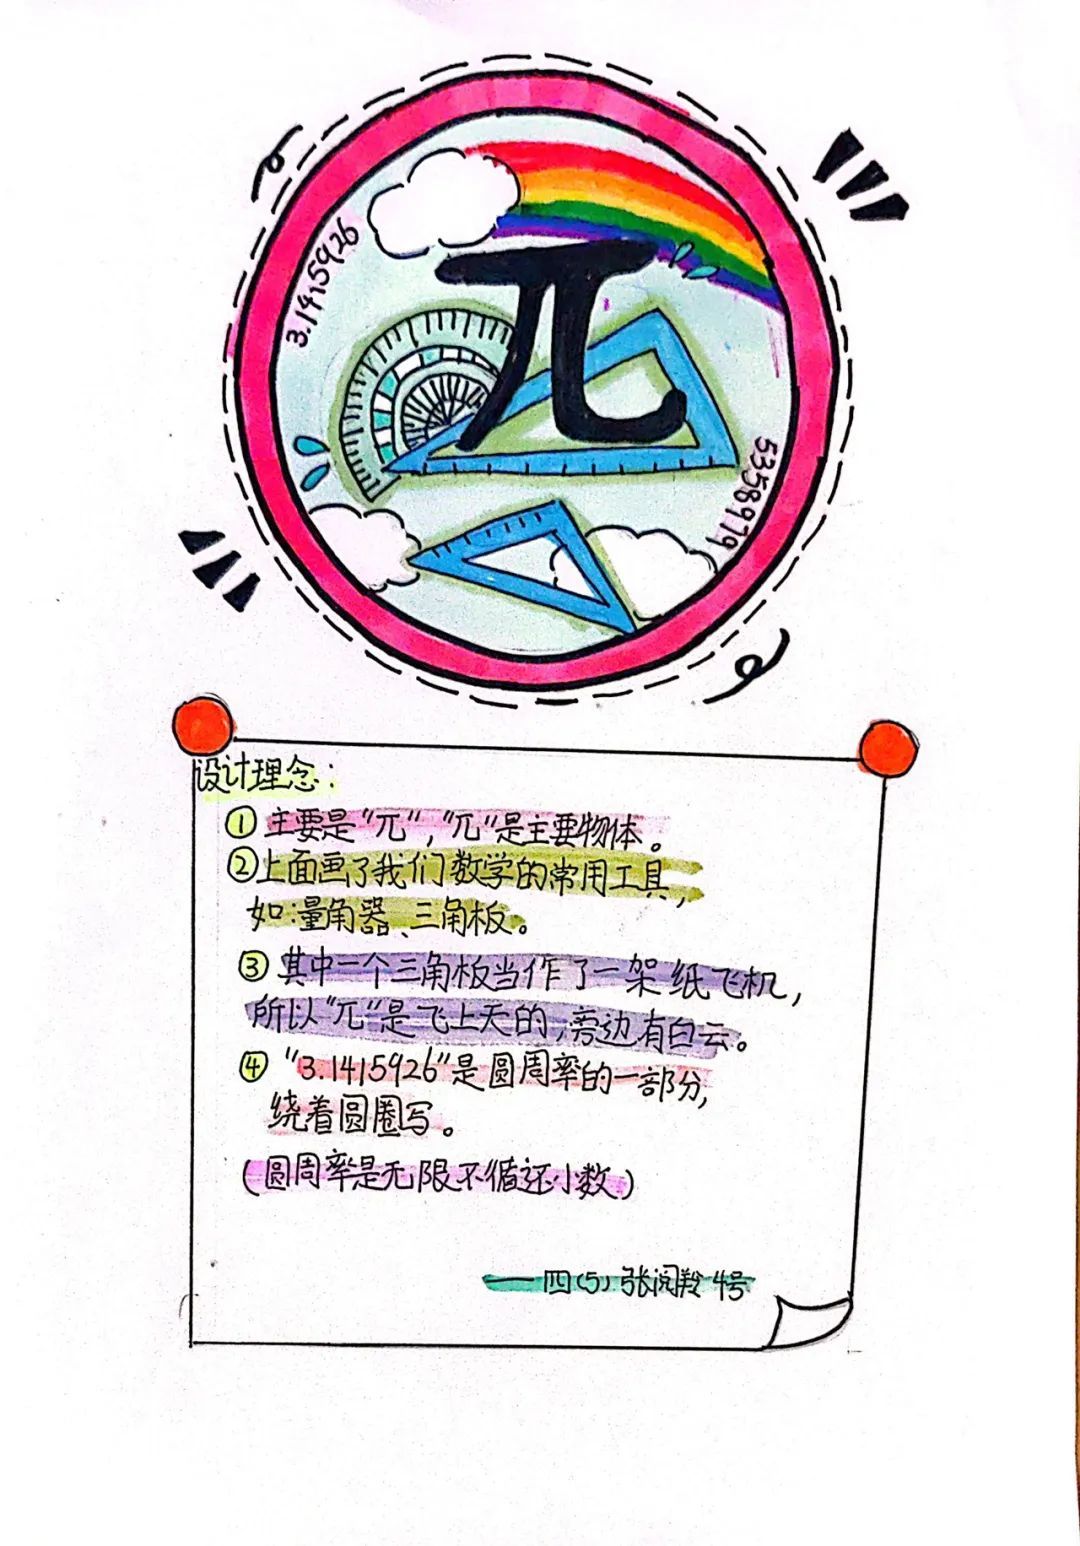 3.1415926
兀
5358979
设计理念:
①主要是“兀”,“兀”是主要物体。
②上面画了我们数学的常用工具,
如:量角器、三角板。
③其中一个三角板当作了一架纸飞机,
所以“兀”是飞上天的,旁边有白云。
④“3.1415926”是圆周率的一部分,
绕着圆圈写。
(圆周率是无限不循还小数)
——四(5) 张阅羚 4号